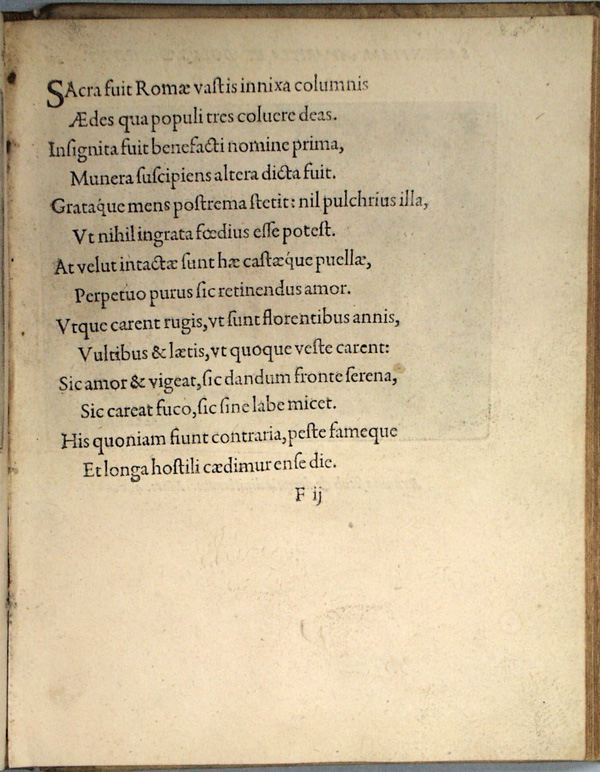 SAcra fuit Romæ vaſtis innixa columnis
Ædes qua populi tres coluere deas.
Inſignita fuit benefacti nomine prima,
Munera ſuſcipiens altera dicta fuit.
Grataq́ue mens poſtrema ſtetit: nil pulchrius illa,
Vt nihil ingrata fœdius eſſe poteſt.
At velut intactæ ſunt hæ caſtæque puellæ,
Perpetuo purus ſic retinendus amor.
Vtque carent rugis, vt ſunt florentibus annis,
Vultibus & lætis, vt quoque veſte carent:
Sic amor & vigeat, ſic dandum fronte ſerena,
Sic careat fuco, ſic ſine labe micet.
His quoniam fiunt contraria, peſte fameque
Et longa hoſtili cædimur enſe die.
F ij